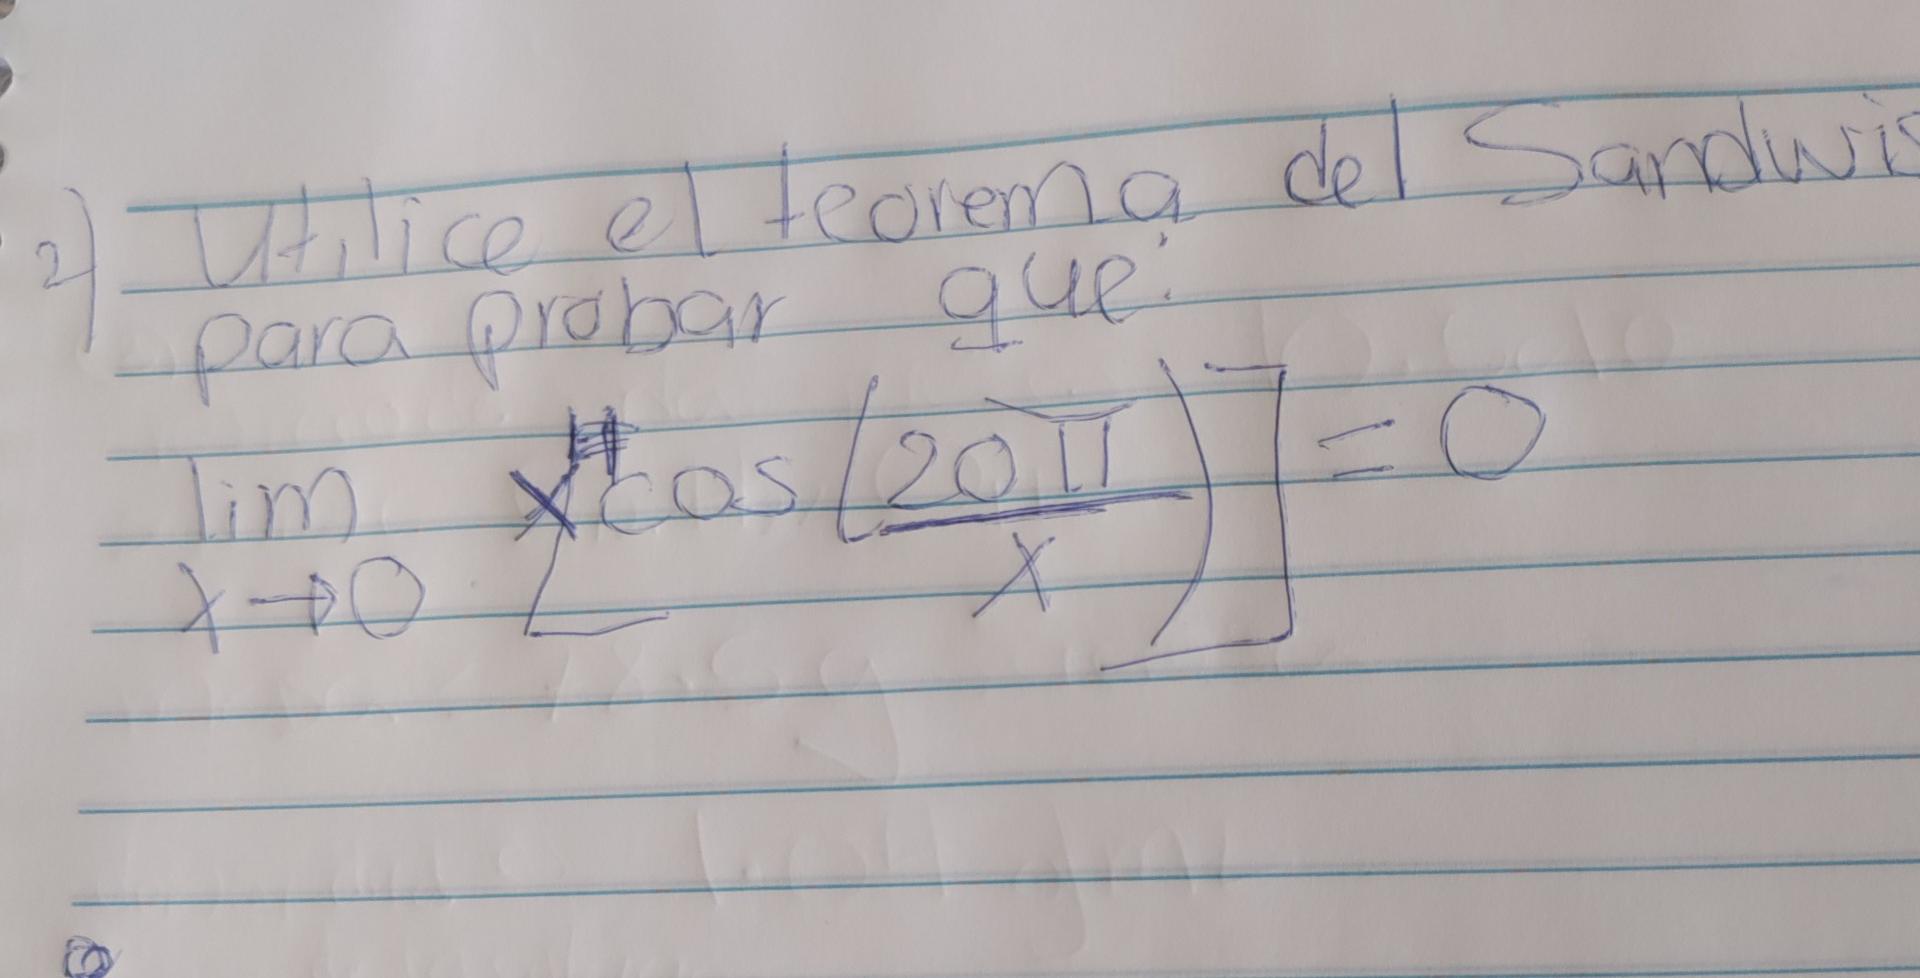 2) Utilice el teorema del Sandwis
para probar que:
lim x⁴cos(20π/x)] = 0
x→0